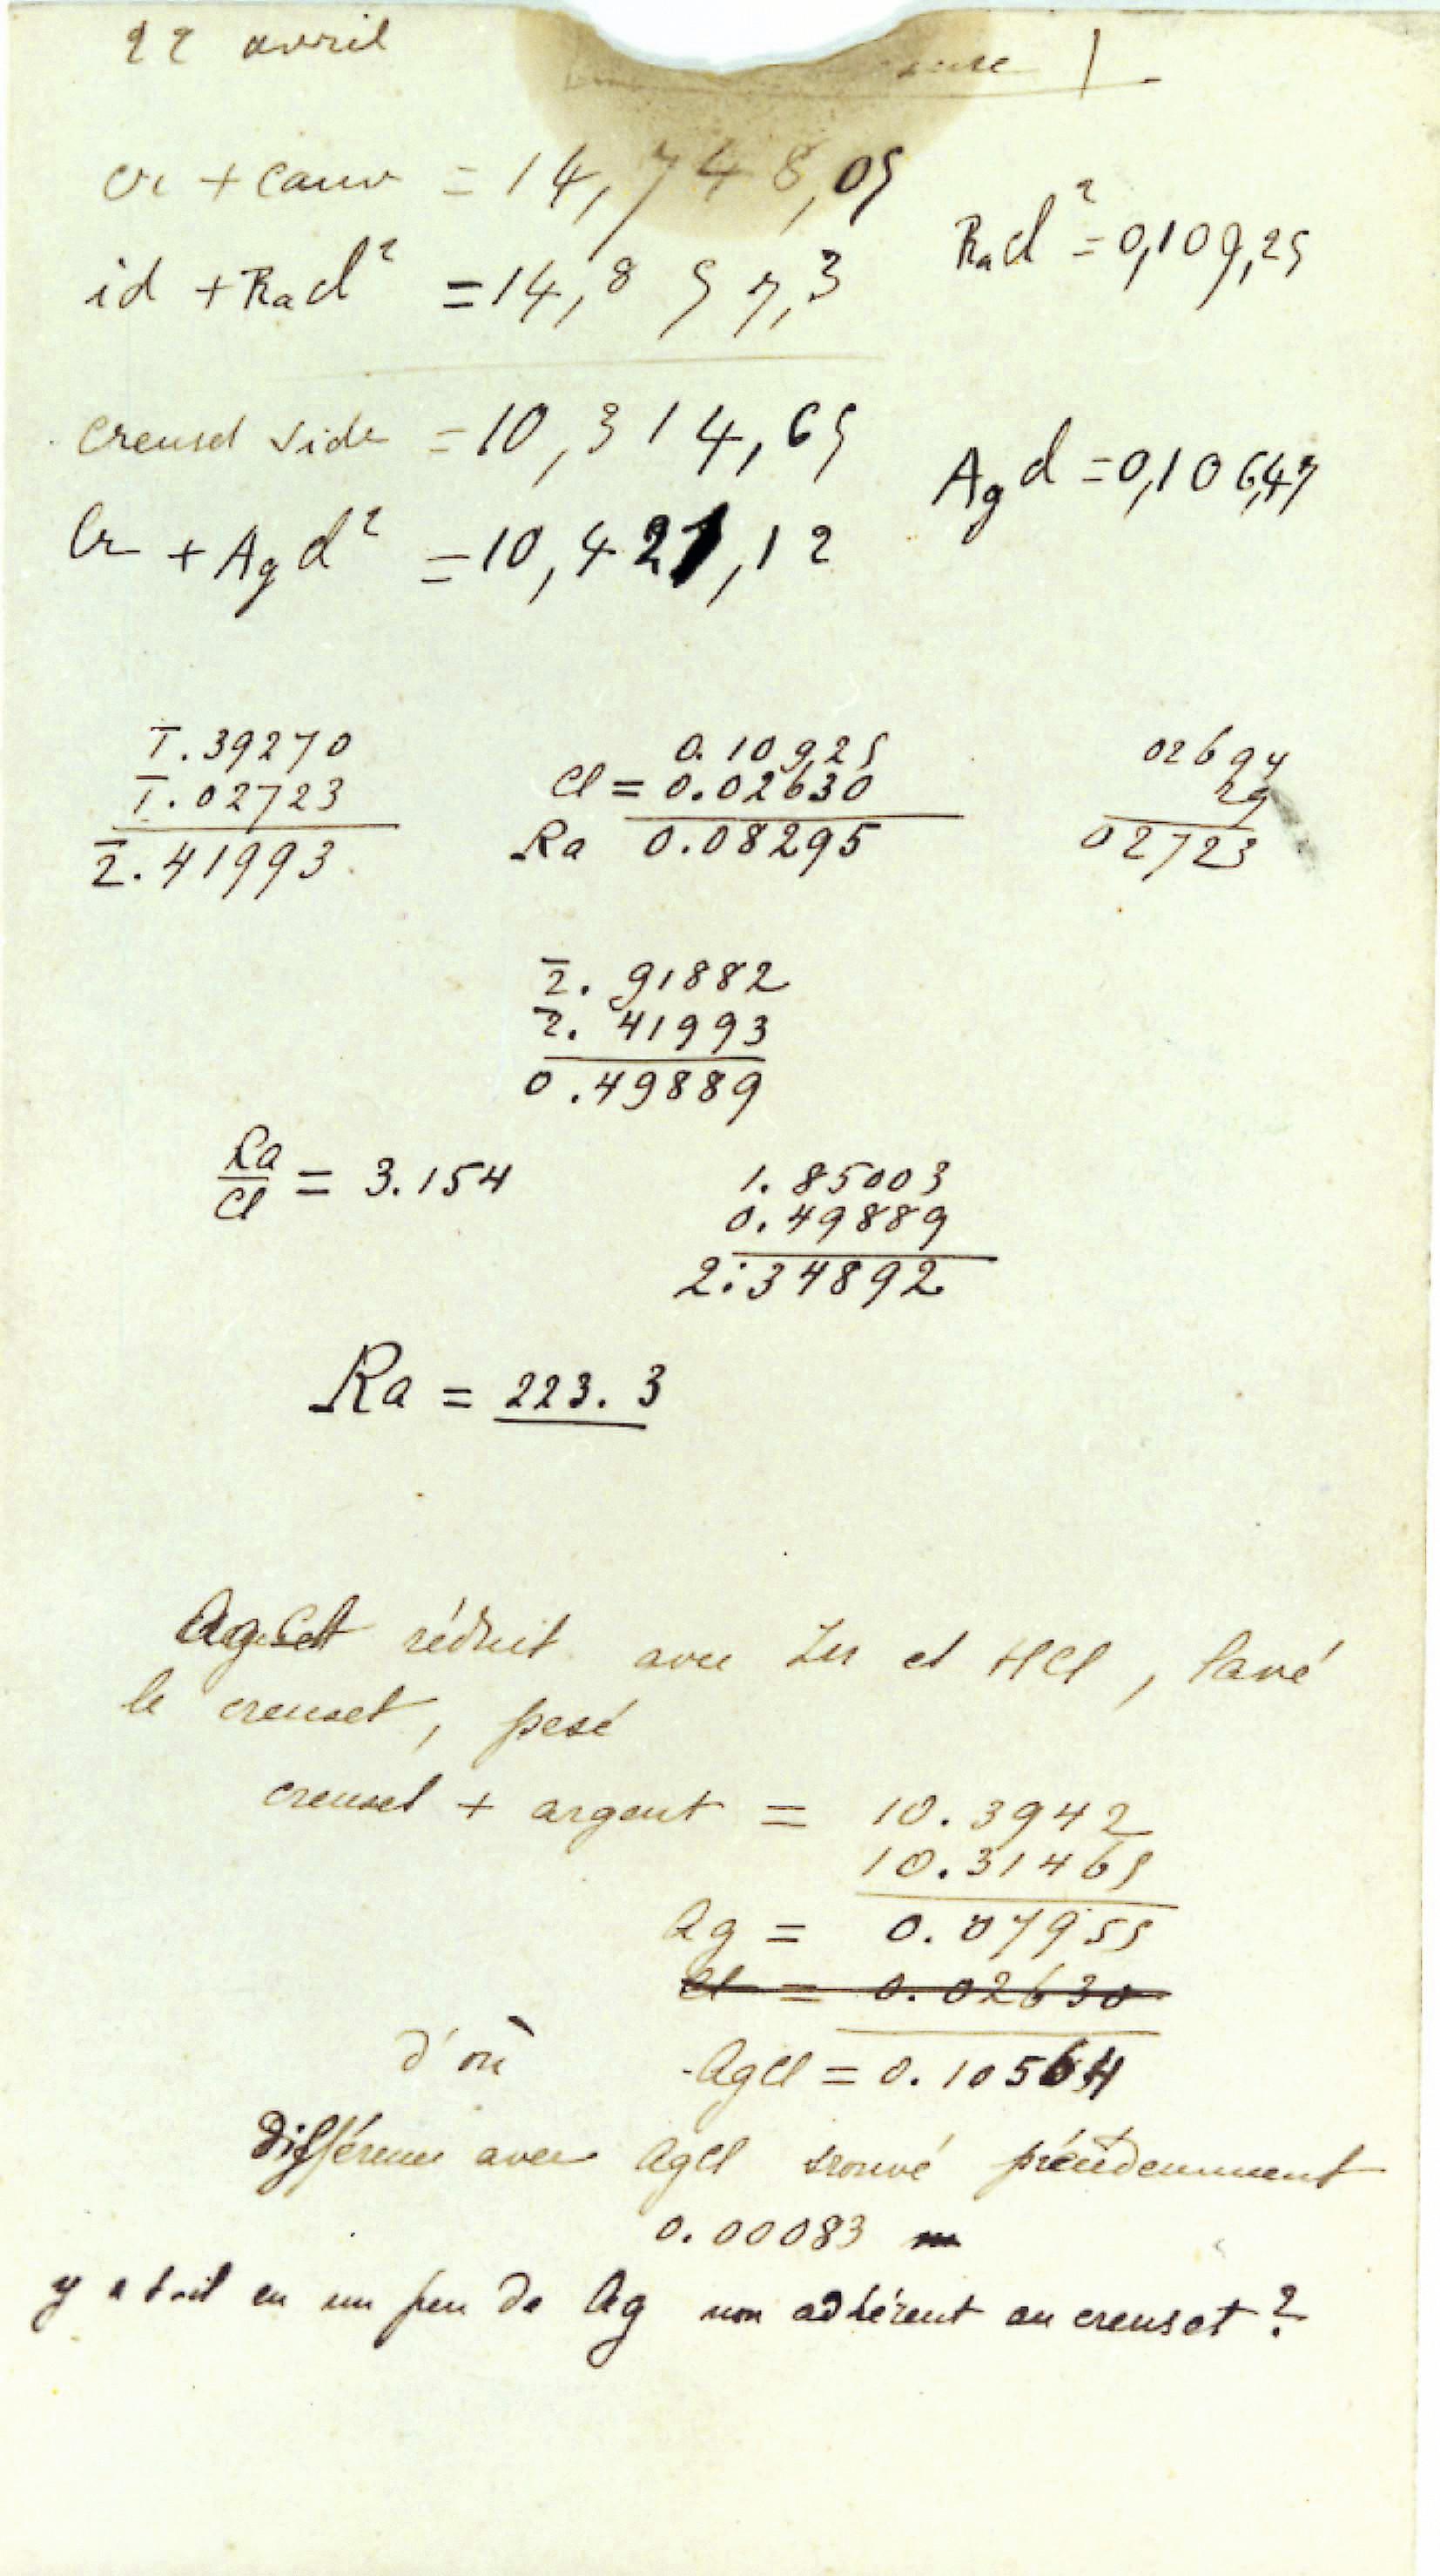 22 avril
cr + couv = 14,748,05
Rad² = 0,109,25
id + Rad² = 14,857,3
creuset vide = 10,314,65
Agd = 0,106,47
Cr + Agd² = 10,421,12
1̅.39270
1̅.02723
2̅.41993
0.10925
Cl = 0.02630
Ra 0.08295
02694
29
02723
2̅.91882
2̅.41993
0.49889
Ra/Cl = 3.154
1.85003
0.49889
2.34892
Ra = 223.3
réduit avec Zn et HCl, lavé
le creuset, pesé
creuset + argent = 10.3942
10.31465
Ag = 0.07955
Cl = 0.02630
d'où AgCl = 0.10564
Différence avec AgCl trouvé précédemment
0.00083
y a t-il eu un peu de Ag non adhérent au creuset ?